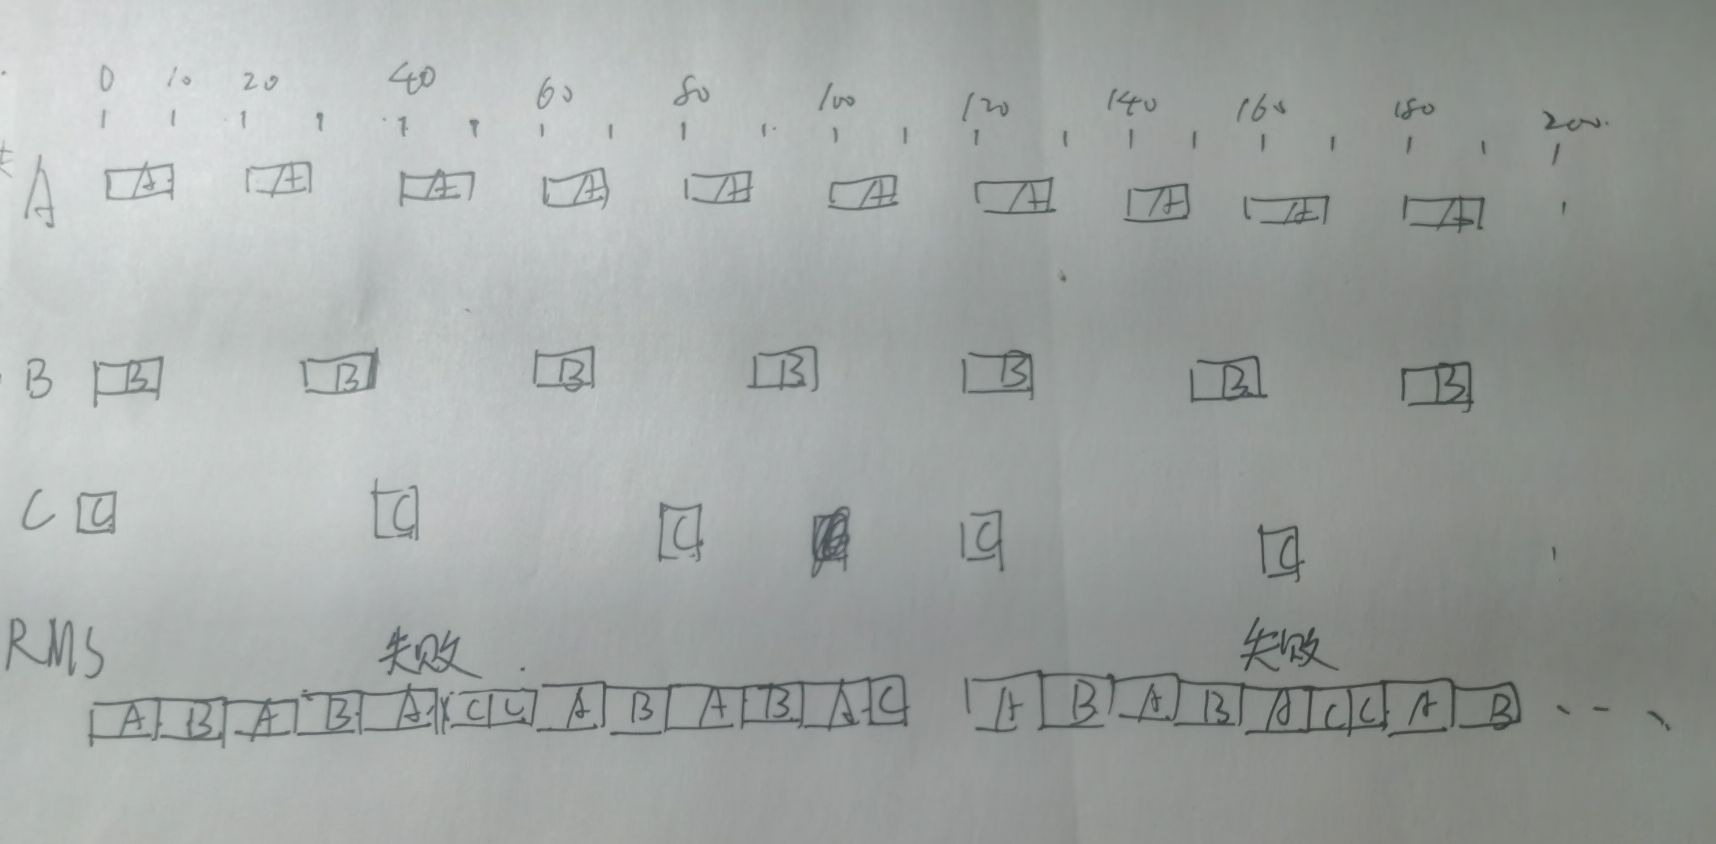 0 10 20 40 60 80 100 120 140 160 180 200
A A A A A A A A A A A
B B B B B B B B
C C C C C C
RMS 失败 失败
A B A B A C C A B A B A C A B A B A C C A B ...